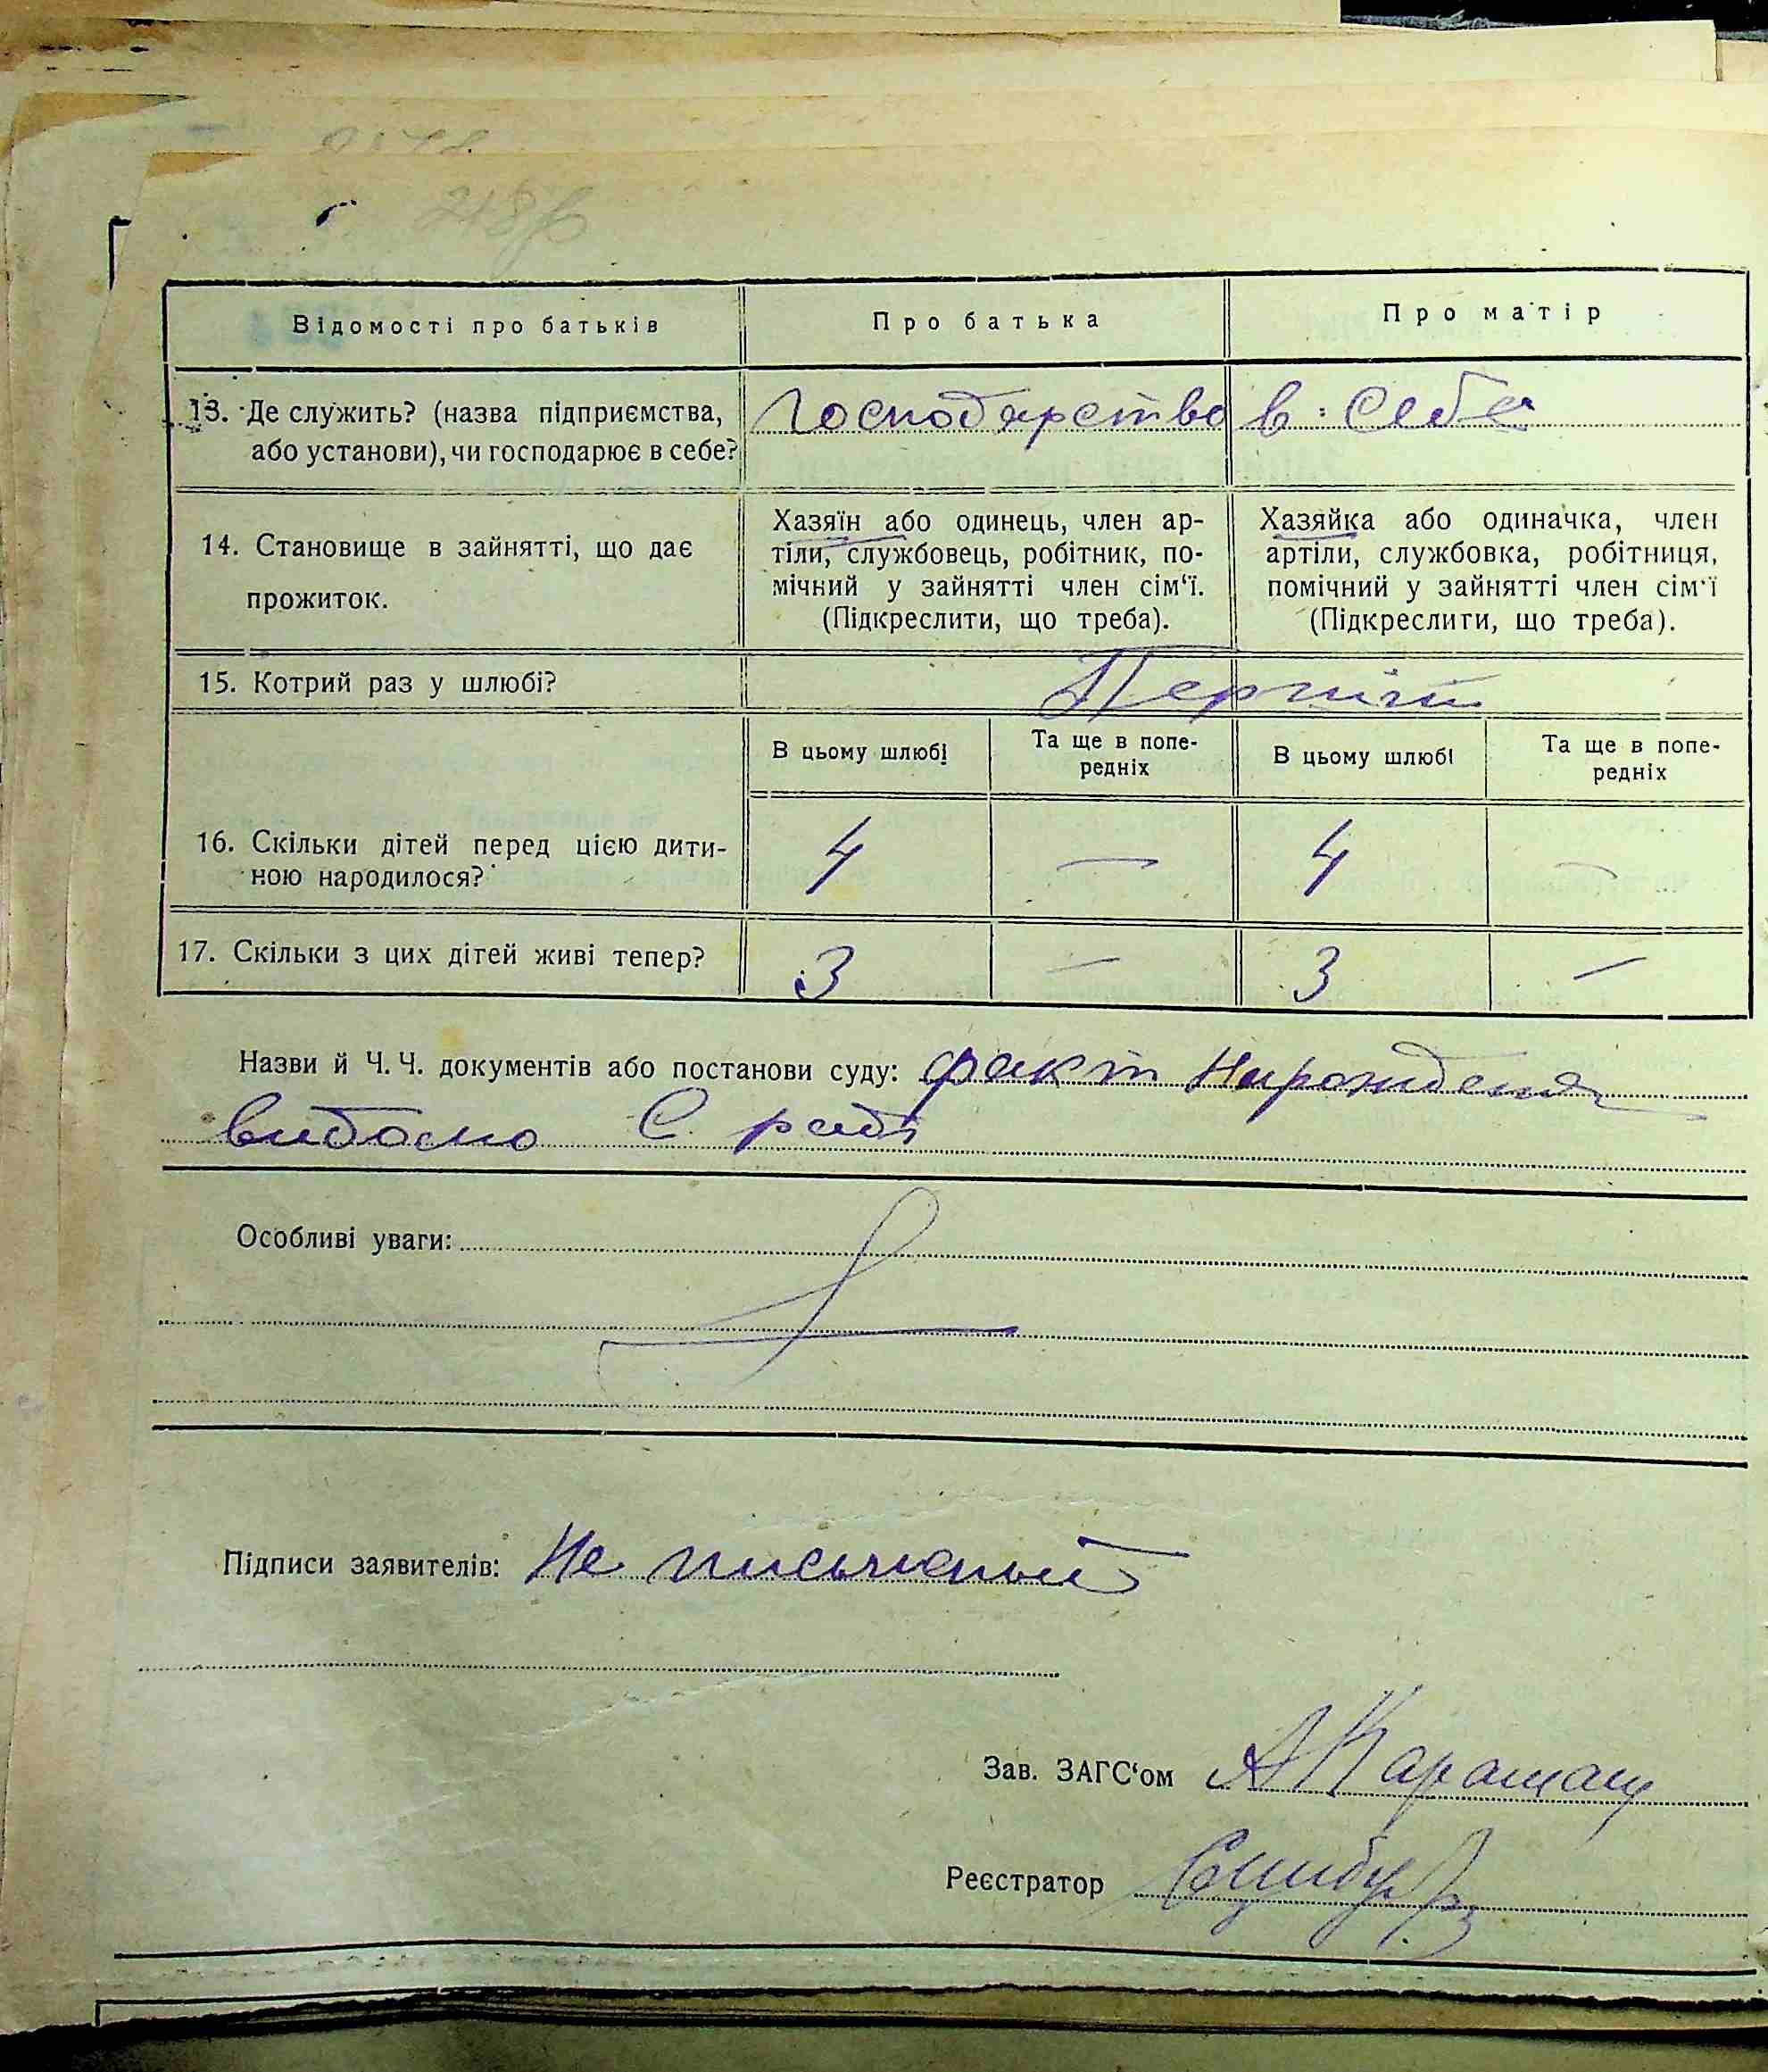 Відомості про батьків
Про батька
Про матір
13. Де служить? (назва підприємства,
або установи), чи господарює в себе?
Господарство в себе
14. Становище в зайнятті, що дає
прожиток.
Хазяїн або одинець, член ар-
тіли, службовець, робітник, по-
мічний у зайнятті член сім'ї.
(Підкреслити, що треба).
Хазяйка або одиначка, член
артіли, службовка, робітниця,
помічний у зайнятті член сім'ї
(Підкреслити, що треба).
15. Котрий раз у шлюбі?
В цьому шлюбі
Та ще в попе-
редніх
В цьому шлюбі
Та ще в попе-
редніх
16. Скільки дітей перед цією дити-
ною народилося?
4 — 4 —
17. Скільки з цих дітей живі тепер?
3 — 3 —
Назви й Ч. Ч. документів або постанови суду: факт Нарождения
видомо С. раді
Особливі уваги:
Підписи заявителів: Не письменый
Зав. ЗАГС'ом
Реєстратор